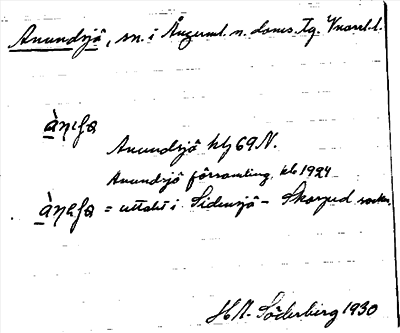 Anundsjö, sn. i Ångerml. n. doms. Tg. Vnorrl. l.
ànɩʃə
Anundsjö hly 69 N.
Anundsjö församling kb 1924
ànəʃə = uttalet i Sidensjö – Skorped sockn.
H. N. Söderberg 1930